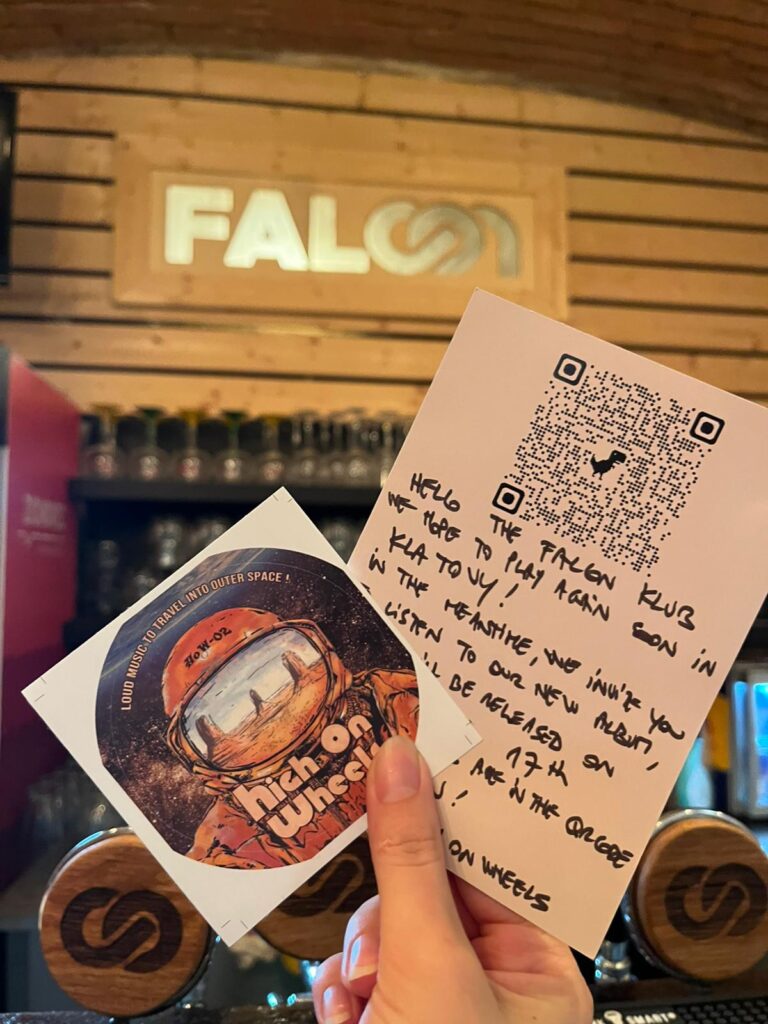 FALCON
HELLO THE FALCON KLUB
WE HOPE TO PLAY AGAIN SOON IN
KLATOVY!
IN THE MEANTIME, WE INVITE YOU
LISTEN TO OUR NEW ALBUM,
LL BE RELEASED ON
17th
ARE IN THE QRCODE
!
ON WHEELS
LOUD MUSIC TO TRAVEL INTO OUTER SPACE !
HOW-02
High On
Wheels
SMART